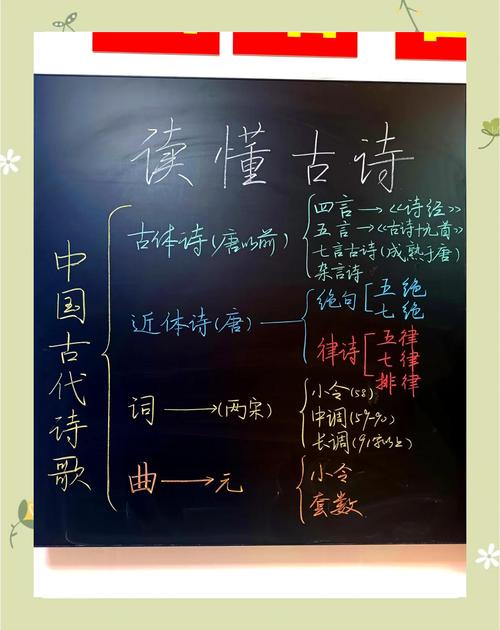 读懂古诗
中国古代诗歌
古体诗(唐以前)
四言→《诗经》
五言→《古诗十九首》
七言古诗(成熟于唐)
杂言诗
近体诗(唐)
绝句
五绝
七绝
律诗
五律
七律
排律
词→(两宋)
小令(58)
中调(59-90)
长调(91字以上)
曲→元
小令
套数